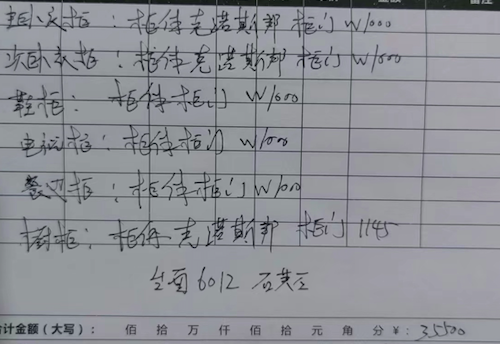 主卧衣柜：柜体克诺斯邦 柜门 W1000
次卧衣柜：柜体克诺斯邦 柜门 W1000
鞋柜：柜体柜门 W1000
电视柜：柜体柜门 W1000
餐边柜：柜体柜门 W1000
橱柜：柜体 克诺斯邦 柜门 1145
台面 6012 石英石
计金额（大写）： 佰 拾 万 仟 佰 拾 元 角 分 ¥： 35500